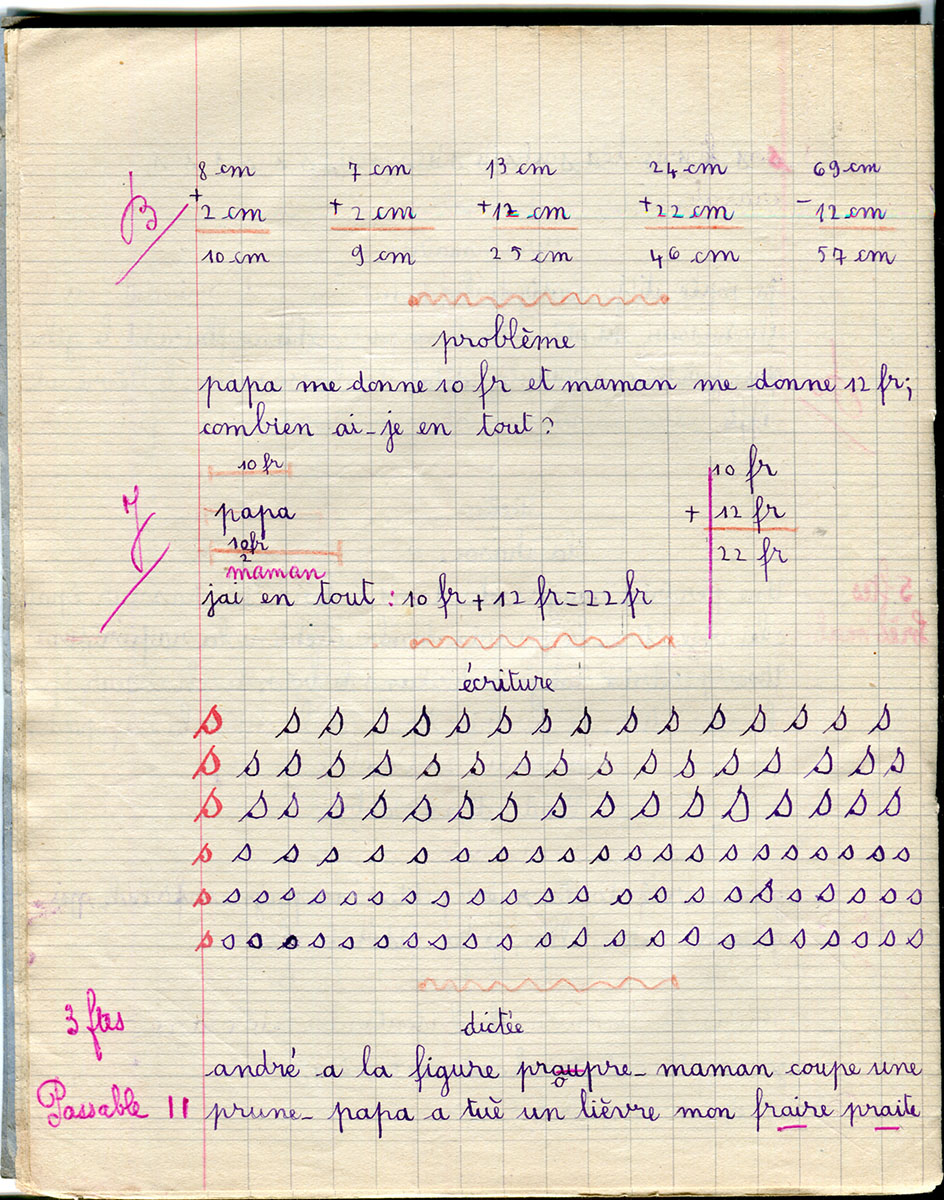 8 cm 7 cm 13 cm 24 cm 69 cm
B + 2 cm + 2 cm + 12 cm + 22 cm - 12 cm
10 cm 9 cm 25 cm 46 cm 57 cm
problème
papa me donne 10 fr et maman me donne 12 fr;
combien ai-je en tout?
10 fr 10 fr
papa + 12 fr
10fr 22 fr
2
maman
jai en tout : 10 fr + 12 fr = 22 fr
écriture
s s s s s s s s s s s s s s s s
s s s s s s s s s s s s s s s s s
s s s s s s s s s s s s s s s s s
s s s s s s s s s s s s s s s s s s s s s s s s
s s s s s s s s s s s s s s s s s s s s s s s s s
s s s s s s s s s s s s s s s s s s s s s s s s
3 ftes dictée
andré a la figure praupre - maman coupe une
o
Passable 11 prune - papa a tuè un lièvre mon fraire praite